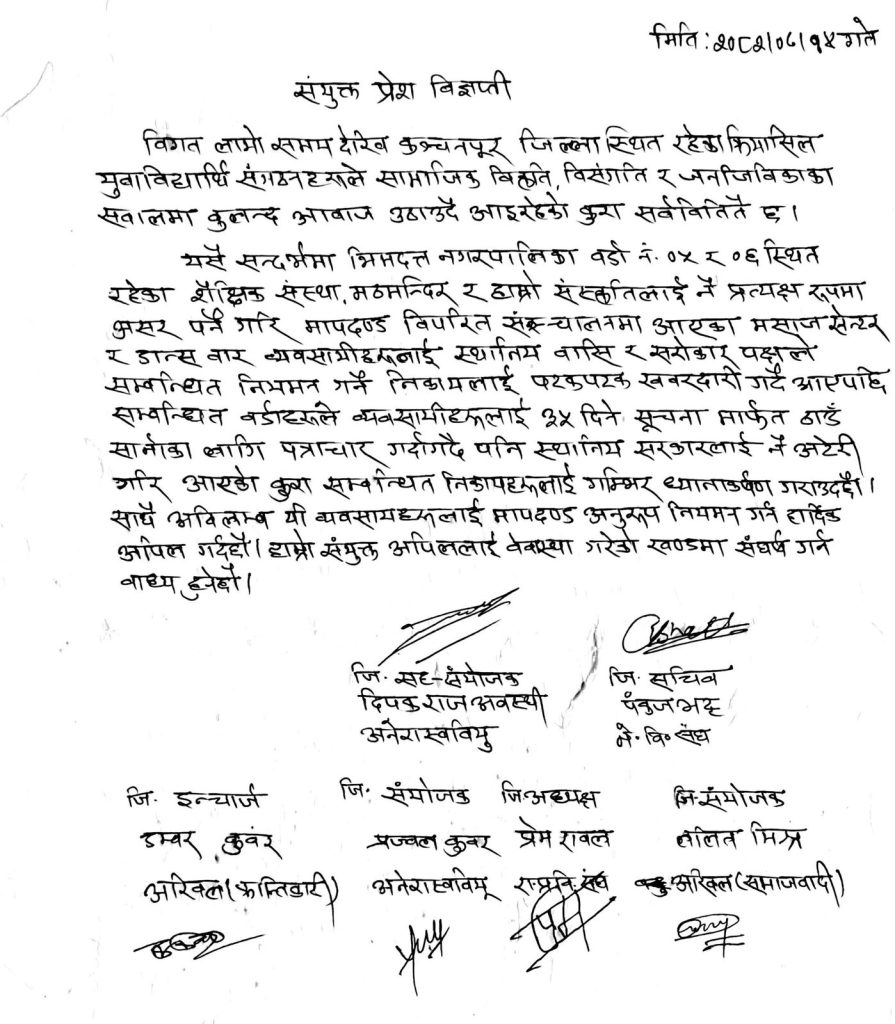 मिति : २०८२/०८/१५ गते
संयुक्त प्रेश विज्ञप्ती
विगत लामो समय देखि कञ्चनपुर जिल्ला स्थित रहेका क्रियासिल
युवाविद्यार्थि संगठनहरूले सामाजिक विकृति, विसंगति र जनजिविकाका
सवालमा बुलन्द आवाज उठाउदै आइरहेको कुरा सर्वविदितै छ।
यसै सन्दर्भमा भिमदत्त नगरपालिका वडा नं. ०४ र ०६ स्थित
रहेका शैक्षिक संस्था, मठमन्दिर र हाम्रो संस्कृतिलाई नै प्रत्यक्ष रूपमा
असर पर्ने गरि मापदण्ड विपरित सञ्चालनमा आएका मसाज सेन्टर
र डान्स वार व्यवसायीहरूलाई स्थानिय वासि र सरोकार पक्षले
सम्वन्धित नियमन गर्ने निकायलाई पटकपटक खवरदारी गर्दै आएपछि
सम्वन्धित वडाहरूले व्यवसायीहरूलाई ३५ दिने सूचना मार्फत ठाउँ
सार्नका लागि पत्राचार गर्दागर्दै पनि स्थानिय सरकारलाई नै अटेरी
गरि आएको कुरा सम्वन्धित निकायहरूलाई गम्भिर ध्यानाकर्षण गराउदछौ।
साथै अविलम्ब यी व्यवसायहरूलाई मापदण्ड अनुरूप नियमन गर्न हार्दिक
अपिल गर्दछौ। हाम्रो संयुक्त अपिललाई वेवास्था गरेको खण्डमा संघर्ष गर्न
वाध्य हुनेछौ।
जि. सह-संयोजक जि. सचिव
दिपक राज अवस्थी पंकज भट्ट
अनेरास्ववियु ने. वि. संघ
जि. इन्चार्ज जि. संयोजक जि. अध्यक्ष जि. संयोजक
डम्बर कुवंर प्रज्वल कुवर प्रेम रावल ललित मिश्र
अखिल (क्रान्तिकारी) अनेरास्ववियू रा.प्र.वि. संघ अखिल (समाजवादी)